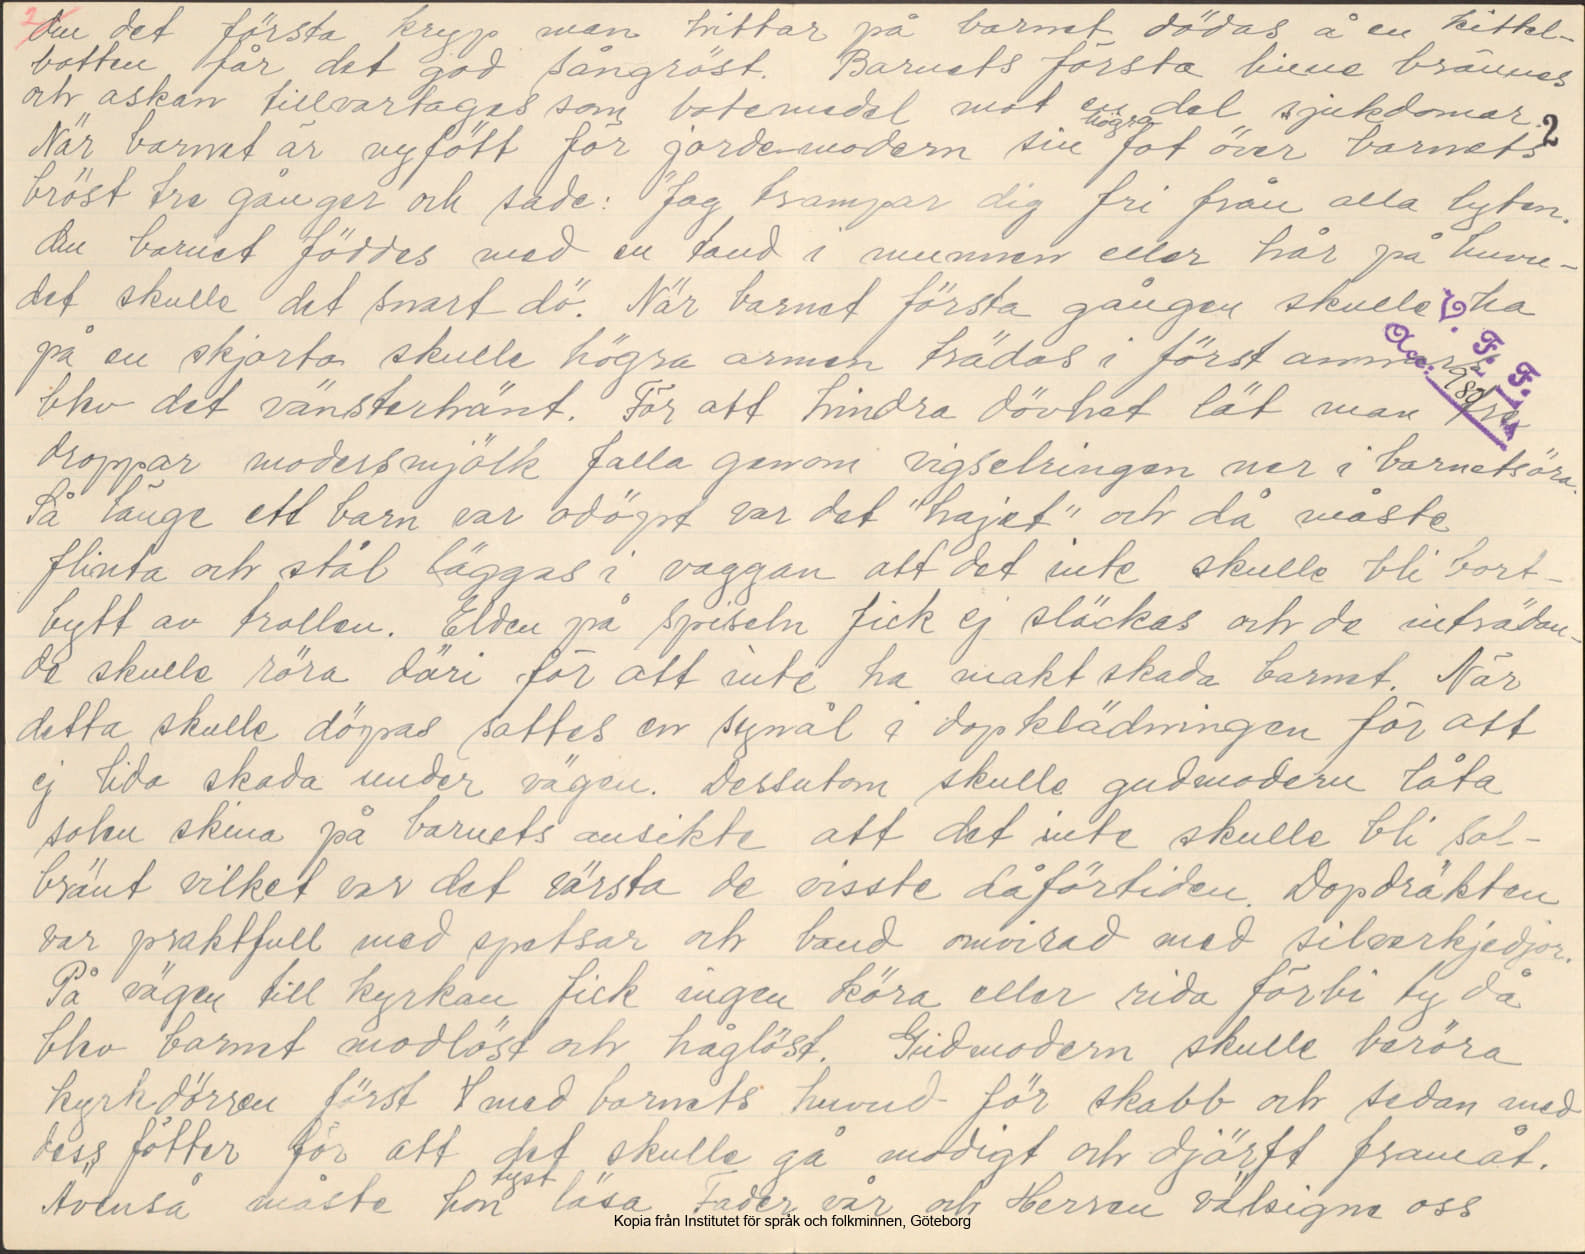 2
Om det första kryp man hittar på barnet dödas å en kittel-
botten får det god sångröst. Barnets första linne brännes
och askan tillvartages som botemedel mot en del sjukdomar.
2
När barnet är nyfött för jordemodern sin högra fot över barnets
bröst tre gånger och sade: "Jag trampar dig fri från alla lyten.
Om barnet föddes med en tand i munnen eller hår på huvu-
det skulle det snart dö. När barnet första gången skulle ha
på en skjorta skulle högra armen trädas i först annars
V. F. F.
Acc:
blev det vänsterhänt. För att hindra dövhet lät man tre
droppar modersmjölk falla genom vigselringen ner i barnets öra.
Så länge ett barn var odöpt var det "hajet" och då måste
flinta och stål läggas i vaggan att det inte skulle bli bort-
bytt av trollen. Elden på spiseln fick ej släckas och de inträdan-
de skulle röra däri för att inte ha makt skada barnet. När
detta skulle döpas sattes en synål i dopklädningen för att
ej lida skada under vägen. Dessutom skulle gudmodern låta
solen skina på barnets ansikte att det inte skulle bli sol-
bränt vilket var det värsta de visste då förtiden. Dopdräkten
var praktfull med spetsar och band omvirad med silverkjedjor.
På vägen till kyrkan fick ingen köra eller rida förbi ty då
blev barnet modlöst och håglöst. Gudmodern skulle beröra
kyrkdörren först med barnets huvud för skabb och sedan med
dess fötter för att det skulle gå modigt och djärft framåt.
Ävenså måste hon tyst läsa Fader vår och Herren välsigne oss
Kopia från Institutet för språk och folkminnen, Göteborg